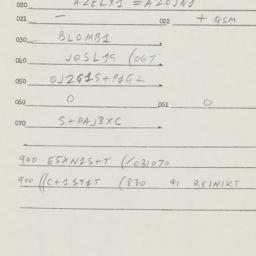 020 AZELX1 = AZOJN1
021 — 022 + QSM
030 BLOMB1
040 JOSL19 (067
050 OJ2G1S+P1G+
060 0 061 0
070 S+PAJ3XC
900 E5XN1S+T (/031070
900 ((C+1ST1T (830 91 REINIKT